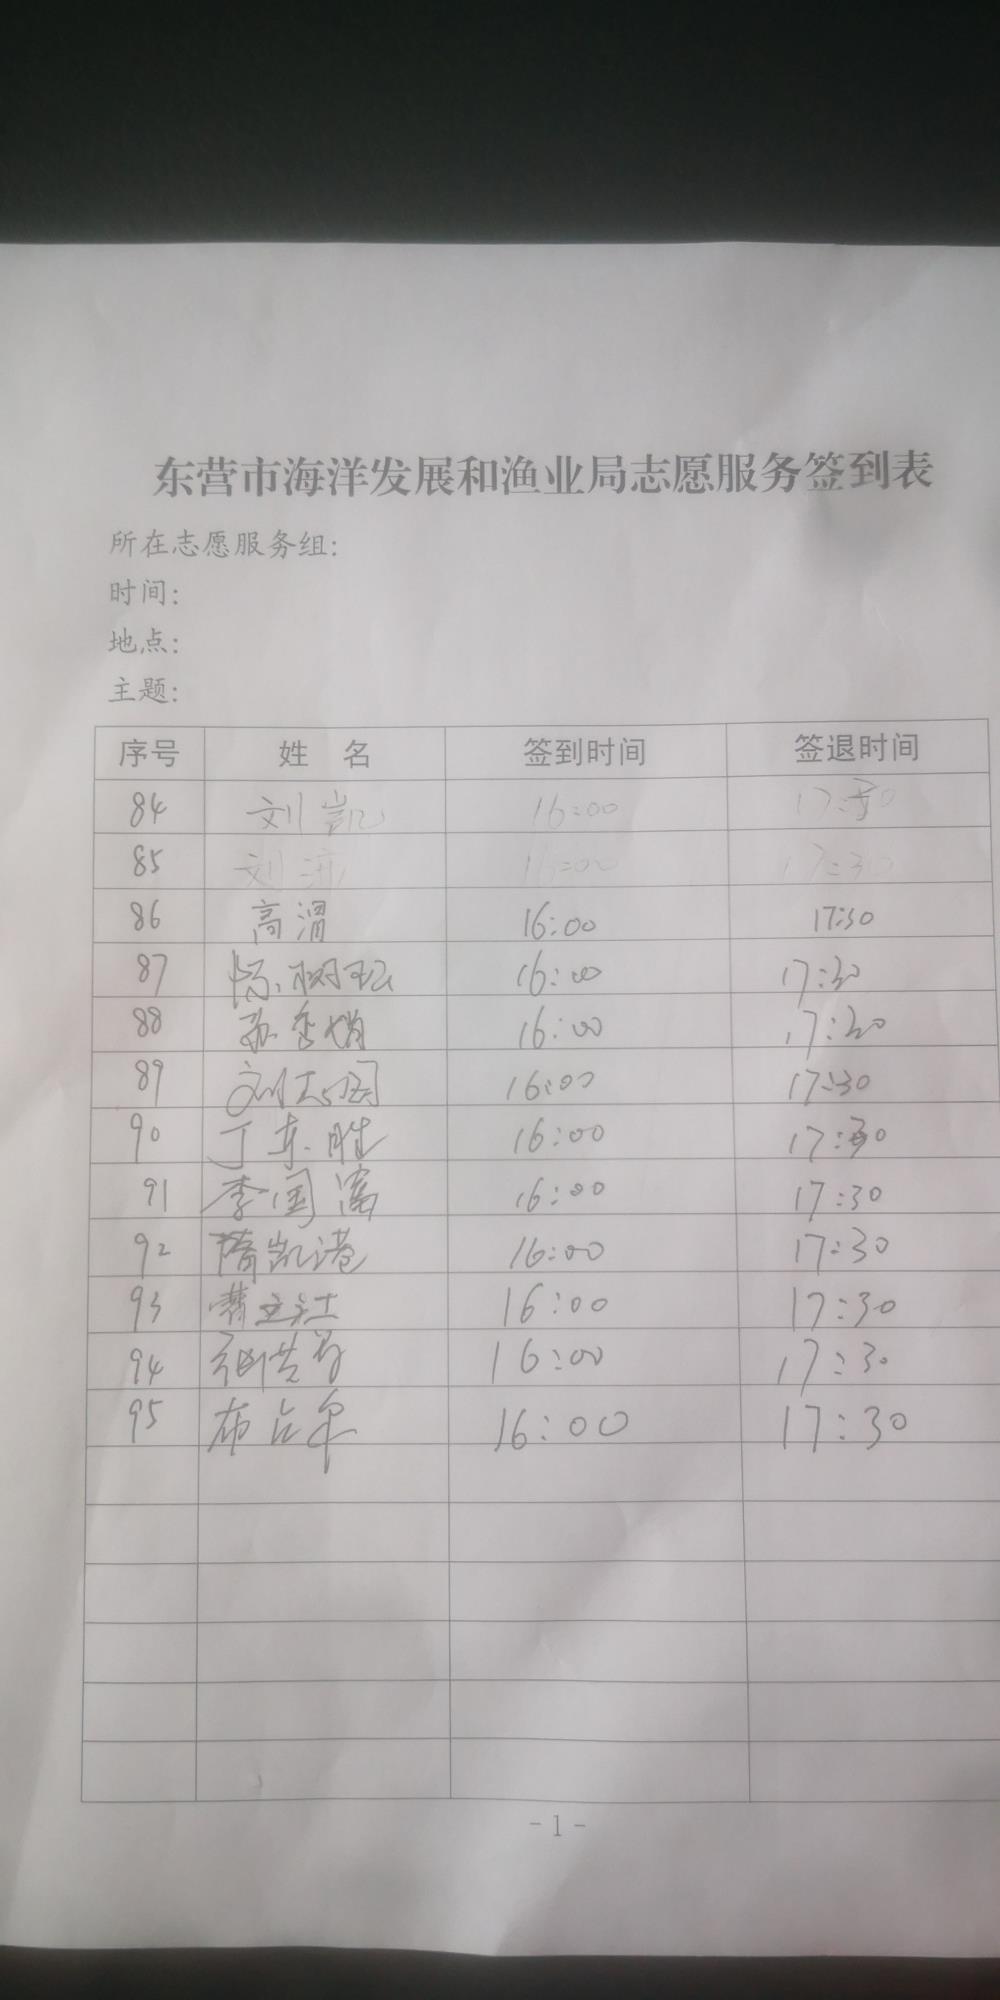 东营市海洋发展和渔业局志愿服务签到表
所在志愿服务组:
时间:
地点:
主题:
序号 姓 名 签到时间 签退时间
84 刘凯 16:00 17:30
85 刘 16:00 17:30
86 高渭 16:00 17:30
87 16:00 17:30
88 16:00 17:30
89 刘志国 16:00 17:30
90 丁东胜 16:00 17:30
91 李国富 16:00 17:30
92 隋凯港 16:00 17:30
93 16:00 17:30
94 16:00 17:30
95 16:00 17:30
- 1 -